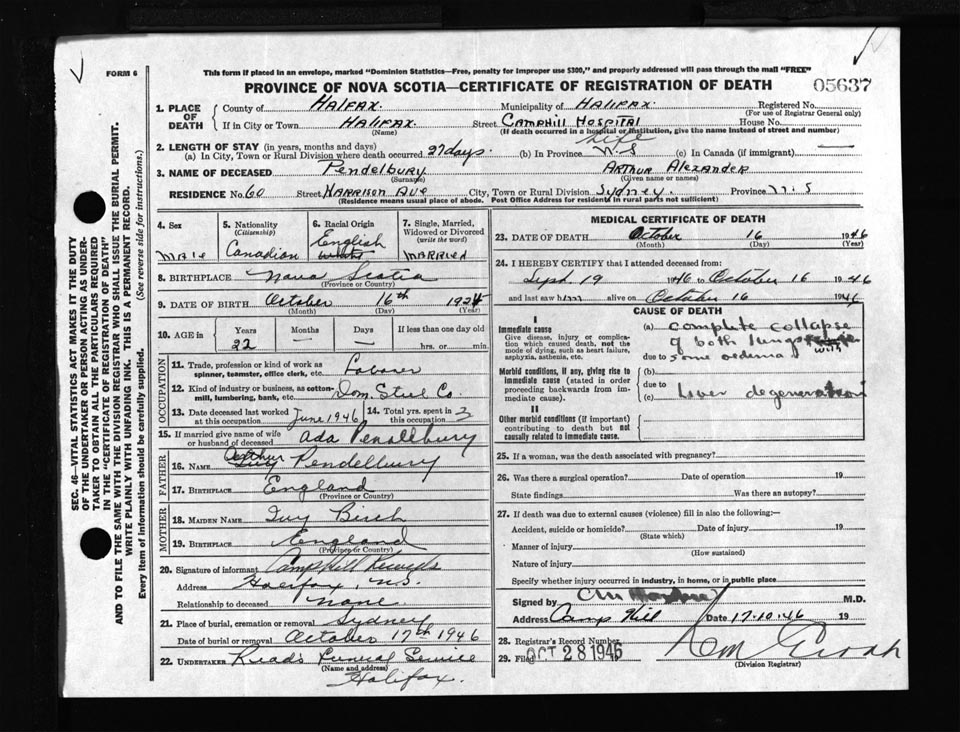 FORM 6
This form if placed in an envelope, marked "Dominion Statistics—Free, penalty for improper use $300," and properly addressed will pass through the mail "FREE"
PROVINCE OF NOVA SCOTIA—CERTIFICATE OF REGISTRATION OF DEATH
05637
SEC. 46—VITAL STATISTICS ACT MAKES IT THE DUTY
OF THE UNDERTAKER OR PERSON ACTING AS UNDER-
TAKER TO OBTAIN ALL THE PARTICULARS REQUIRED
IN THE "CERTIFICATE OF REGISTRATION OF DEATH"
AND TO FILE THE SAME WITH THE DIVISION REGISTRAR WHO SHALL ISSUE THE BURIAL PERMIT.
WRITE PLAINLY WITH UNFADING INK. THIS IS A PERMANENT RECORD.
Every item of information should be carefully supplied. (See reverse side for instructions.)
1. PLACE OF DEATH
County of HALIFAX. Municipality of HALIFAX. Registered No.
(For use of Registrar General only)
If in City or Town HALIFAX Street CAMPHILL HOSPITAL House No.
(Name) (If death occurred in a hospital or institution, give the name instead of street and number)
2. LENGTH OF STAY (in years, months and days)
Life
(a) In City, Town or Rural Division where death occurred 27 days. (b) In Province N.S (c) In Canada (if immigrant) —
3. NAME OF DECEASED Pendelbury ARTHUR ALEZANDER
(Surname) (Given name or names)
RESIDENCE No. 60 Street HARRISON AVE City, Town or Rural Division Sydney. Province N.S
(Residence means usual place of abode. Post Office Address for residents in rural parts not sufficient)
4. Sex Male
5. Nationality (Citizenship) Canadian
6. Racial Origin English
7. Single, Married, Widowed or Divorced (write the word) MARRIED
8. BIRTHPLACE Nova Scotia
(Province or Country)
9. DATE OF BIRTH October 16th 1924
(Month) (Day) (Year)
10. AGE in Years 22 Months — Days — If less than one day old
hrs. or min.
OCCUPATION
11. Trade, profession or kind of work as spinner, teamster, office clerk, etc. Laborer
12. Kind of industry or business, as cotton-mill, lumbering, bank, etc. Dom. Steel Co.
13. Date deceased last worked at this occupation June 1946 14. Total yrs. spent in this occupation 3
15. If married give name of wife or husband of deceased Ada Pendlbury
FATHER
Arthur
16. NAME Guy Pendelbury
17. BIRTHPLACE England
(Province or Country)
MOTHER
18. MAIDEN NAME Ivy Birch
19. BIRTHPLACE England
(Province or Country)
20. Signature of informant Camp Hill Records
Address Halifax, N.S.
Relationship to deceased none.
21. Place of burial, cremation or removal Sydney
Date of burial or removal October 17th 1946
22. UNDERTAKER Read's Funeral Service
(Name and address)
Halifax.
MEDICAL CERTIFICATE OF DEATH
23. DATE OF DEATH October 16 1946
(Month) (Day) (Year)
24. I HEREBY CERTIFY that I attended deceased from:
Sept. 19 1946 to October 16 1946
and last saw him alive on October 16 1946
CAUSE OF DEATH
I
Immediate cause
Give disease, injury or complication which caused death, not the mode of dying, such as heart failure, asphyxia, asthenia, etc.
(a) complete collapse
of both lungs with
due to some oedema
Morbid conditions, if any, giving rise to immediate cause (stated in order proceeding backwards from immediate cause).
(b)
due to
(c) Liver degeneration
II
Other morbid conditions (if important) contributing to death but not causally related to immediate cause.
25. If a woman, was the death associated with pregnancy?
26. Was there a surgical operation? Date of operation 19
State findings Was there an autopsy?
27. If death was due to external causes (violence) fill in also the following:—
Accident, suicide or homicide? Date of injury 19
(State which)
Manner of injury
(How sustained)
Nature of injury
Specify whether injury occurred in industry, in home, or in public place
Signed by M.D.
Address Camp Hill Date 17-10-46 19
28. Registrar's Record Number
29. Filed OCT 28 1946
(Division Registrar)